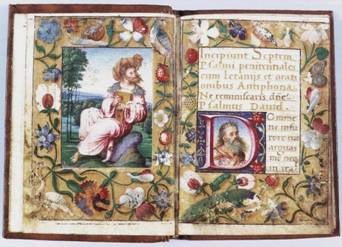 Incipiunt Septem
Psalmi penitentiales
cum letanijs et orati
onibus Antiphona.
Ne reminiscaris dñe.
Psalmus David.
Domine
ne infu
rore tuo
arguas
me neq
in ira t